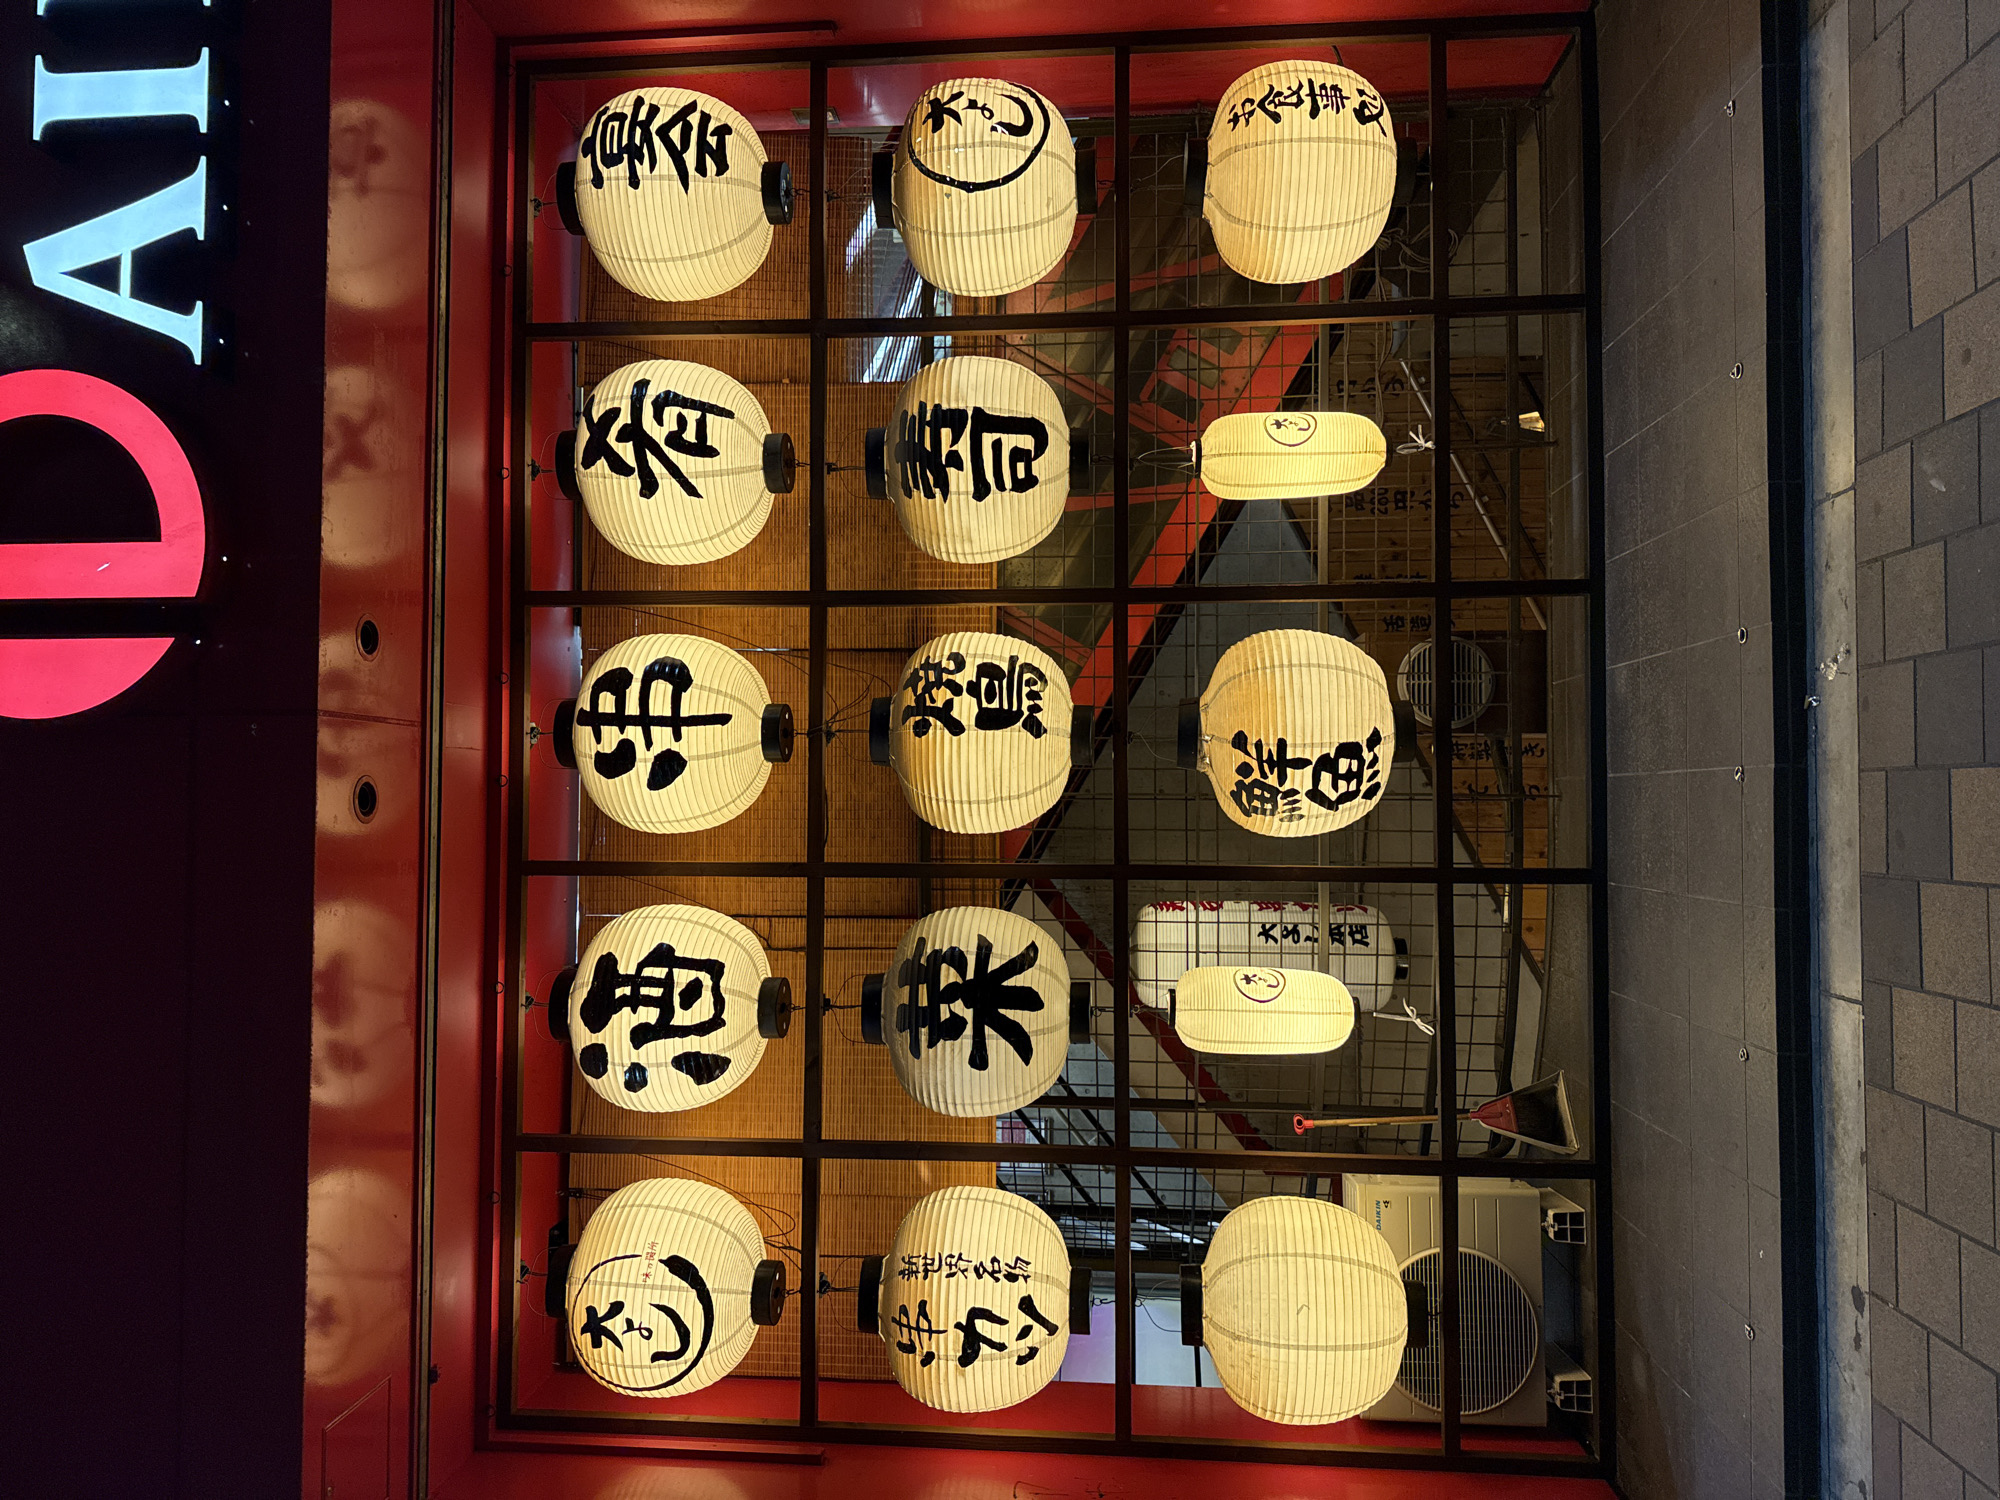 DAI
大よし
酒
串
肴
宴会
新世界名物
串カツ
菜
焼鳥
寿司
大よし
大よし
大よし本店
鮮魚
大よし
お食事処
DAIKIN